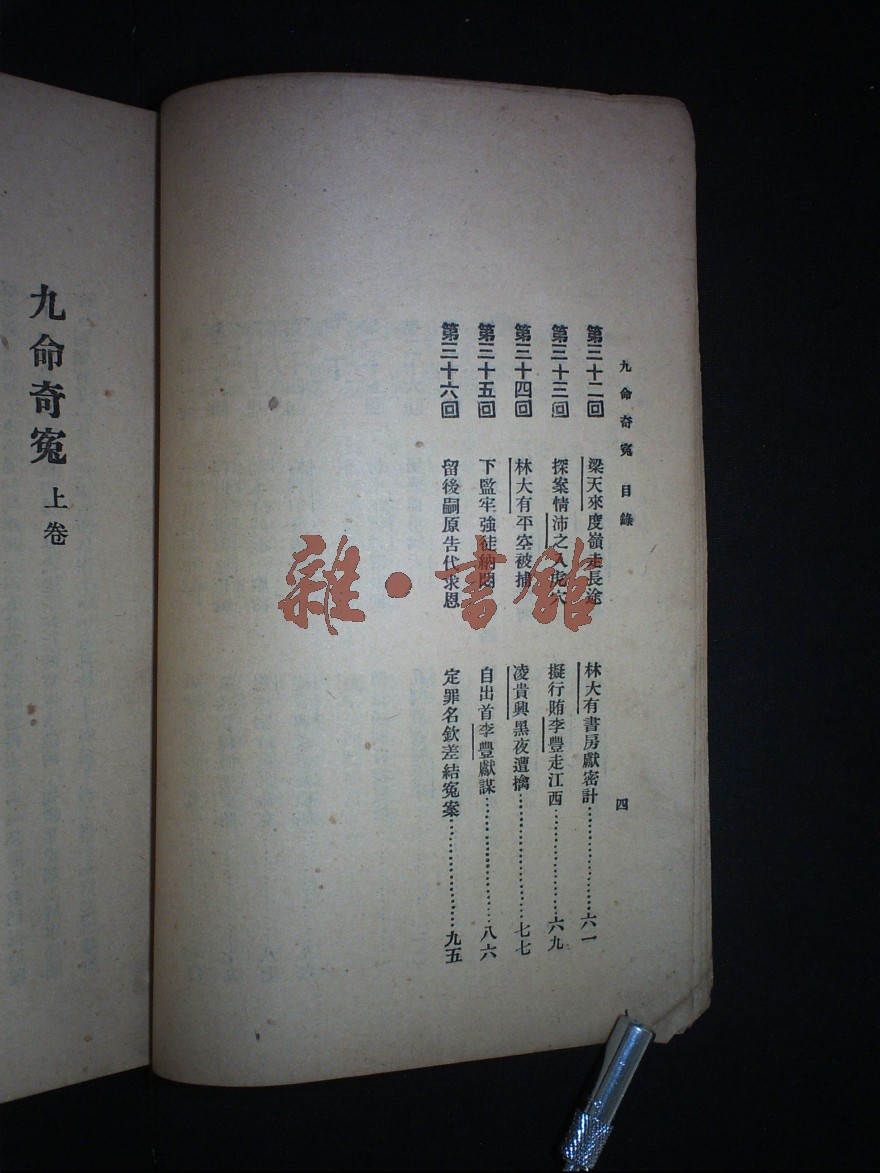 九命奇冤 目錄 四
第三十二回 梁天來度嶺走長途 林大有書房獻密計⋯⋯⋯⋯⋯⋯六一
第三十三回 探案情沛之入虎穴 擬行賄李豐走江西⋯⋯⋯⋯⋯⋯六九
第三十四回 林大有平空被捕 凌貴興黑夜遭擒⋯⋯⋯⋯⋯⋯七七
第三十五回 下監牢強徒納悶 自出首李豐獻謀⋯⋯⋯⋯⋯⋯八六
第三十六回 留後嗣原告代求恩 定罪名欽差結冤案⋯⋯⋯⋯⋯⋯九五
九命奇冤 上卷
雜·書館